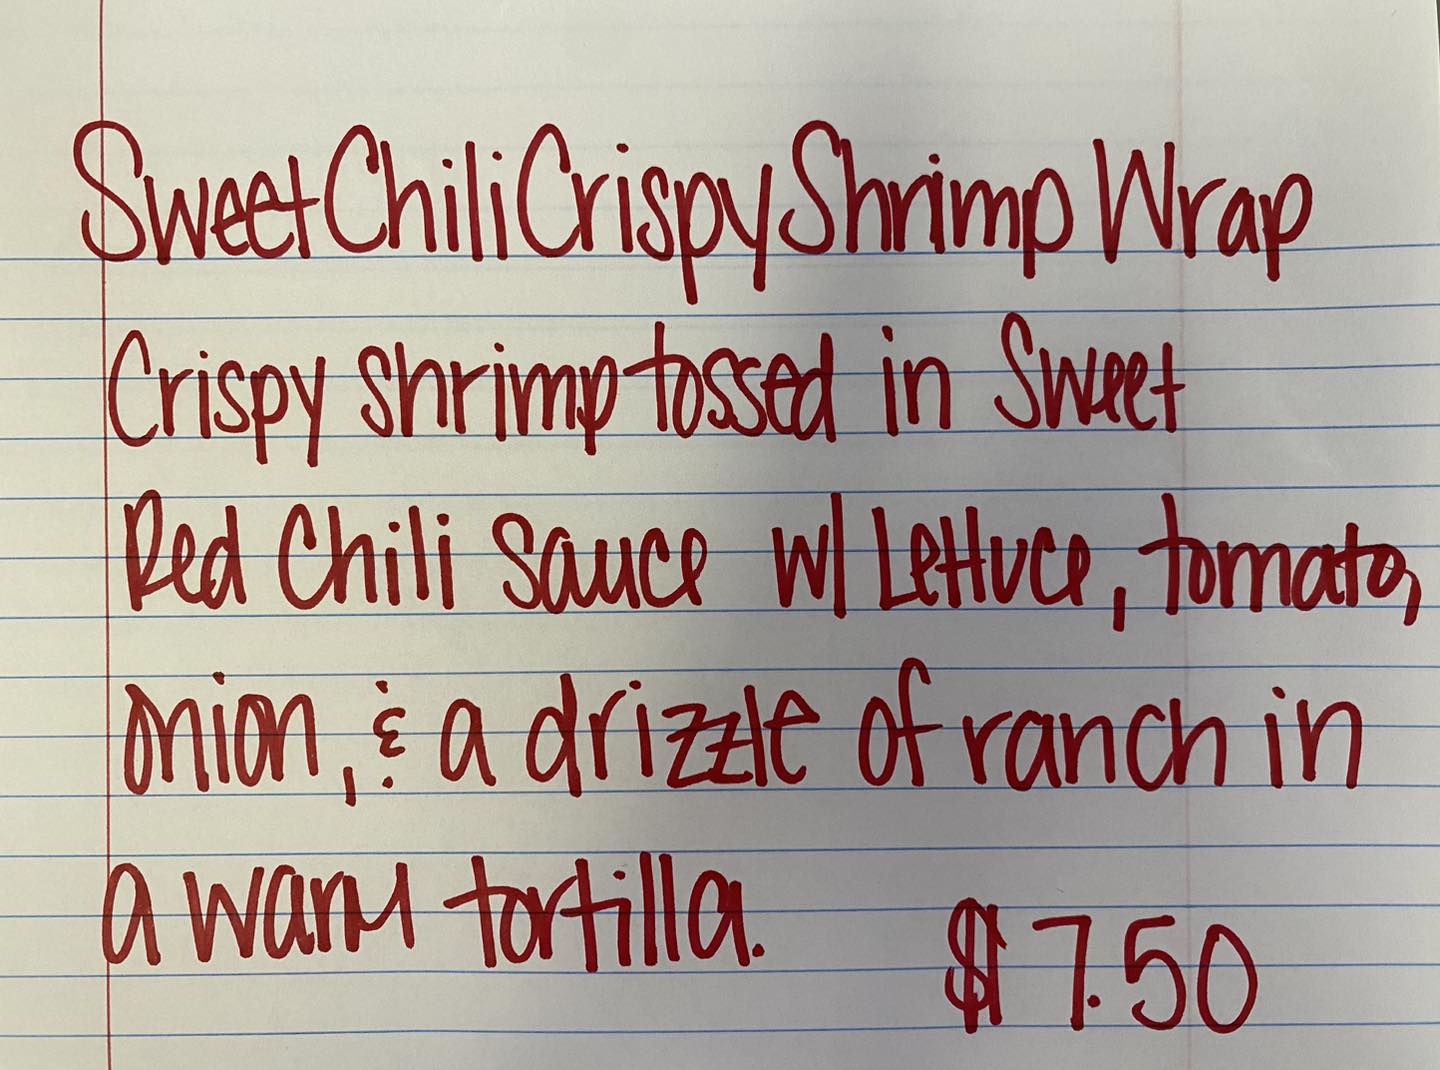 Sweet Chili Crispy Shrimp Wrap
Crispy shrimp tossed in Sweet
Red Chili Sauce w/ Lettuce, tomato,
onion, & a drizzle of ranch in
a warm tortilla.
$7.50